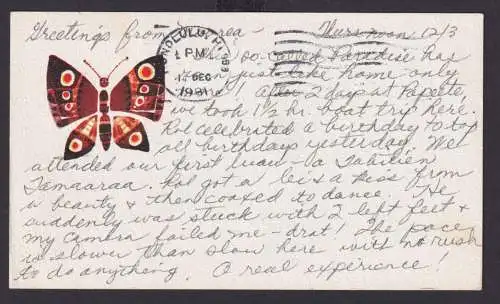 Greetings from Moorea – Thurs. noon 12/3
HONOLULU, HI 968
1 PM
17 DEC
1981
This so-called Paradise has
been just like home only
more! After 2 days at Papeete
we took 1½ hr. boat trip here.
Rol celebrated a birthday to top
all birthdays yesterday. We
attended our first luau – a Tahitien
Tamaaraa. Rol got a lei & a kiss from
a beauty & then coaxed to dance. He
suddenly was stuck with 2 left feet &
my camera failed me – drat! The pace
is slower than slow here with no rush
to do anything. A real experience!